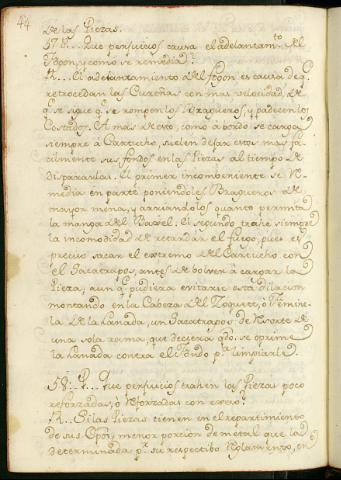 44
de las Piezas.
57 P... Que perjuicios causa el adelantam.to del
Fogon, y como se remedia?
R... El adelantamiento del fogon es causa de q.e
retrocedan las Cureñas con mas velocidad, de
q.e se sigue q.e se rompen los Bragueros, y padecen los
Costados. A mas de esto, como á bordo se carga
siempre á Cartucho, suelen dejar estos mas fa-
cilmente sus fondos en las Piezas al tiempo de
dispararlas. El primer incombeniente se re-
media en parte poniendoles Bragueros de
mayor mena, y arriandolos quanto permita
la manga del Baxel. El segundo trahe siempre
la incomodidad de retardar el fuego, pues es
preciso sacar el extremo del Cartucho con
el Sacatrapos, antes de bolver á cargar la
Pieza, aunq.e pudiera evitarse esta dilacion
montando en la Cabeza del Zoquete, ó Femine-
la de la Lanada, un Sacatrapos de Resorte de
una sola rama, que decezca q.do se oprime
la Lanada contra el fondo p.a limpiarle.
58.. P... Que perjuicios trahen las Piezas poco
reforzadas, ó reforzadas con exceso?
R... Si las Piezas tienen en el repartimiento
de sus menor porcion de metal que la
determinada p.r su respectibo Reglamento, en